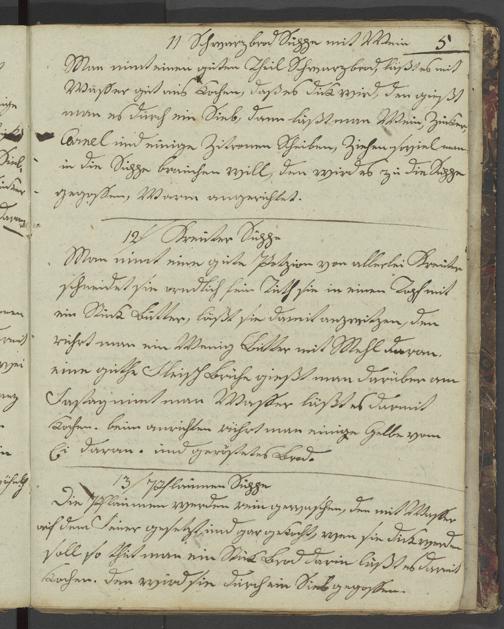 11 Schwarzbrod Suppe mit Wein 5
Man nimt einen guten Theil Schwarzbrod, läßt es mit
Waßer gut aus kochen, daß es dik wird, den gießt
man es durch ein Sieb, dann läßt man Wein Zuker,
Canel und einige Zitronen Scheiben, ziehen soviel man
in die Suppe brauchen will, den wird es zu die Suppe
gegossen, Warm angerichtet.
12 Kreuter Suppe
Man nimt eine gute Portzion von allerlei Kreuter
schneidet sie ordlich fein Tuth sie in einen Topf mit
ein Stük Butter, läßt sie damit anzwitzen, den
rührt man ein Wenig Butter mit Mehl daran.
eine guthe Fleisch Brühe gießt man darüber am
Fastag nimt man Waßer läßt es damit
kochen. beim anrichten rührt man einige Gelbe vom
Ei daran. und geröstetes Brod.
13 Pflaumen Suppe
Die Pflaumen werden rein gewaschen, den mit Waßer
auf dem Feuer gesetzt und gar gekocht, wen sie dik werden
soll so thut man ein Stük Brod darin läßt es damit
kochen. den wird sie durch ein Sieb gegossen.